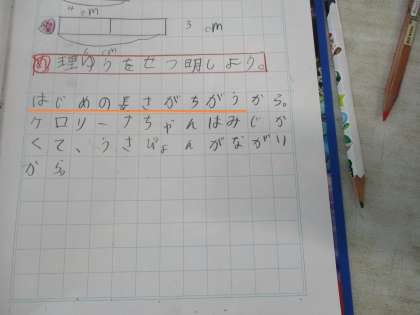 4 cm
3 cm
6 cm
め 理ゆうをせつ明しよう。
はじめの長さがちがうから。
ケロリーナちゃんはみじか
くて、うさぴょんがながい
から。